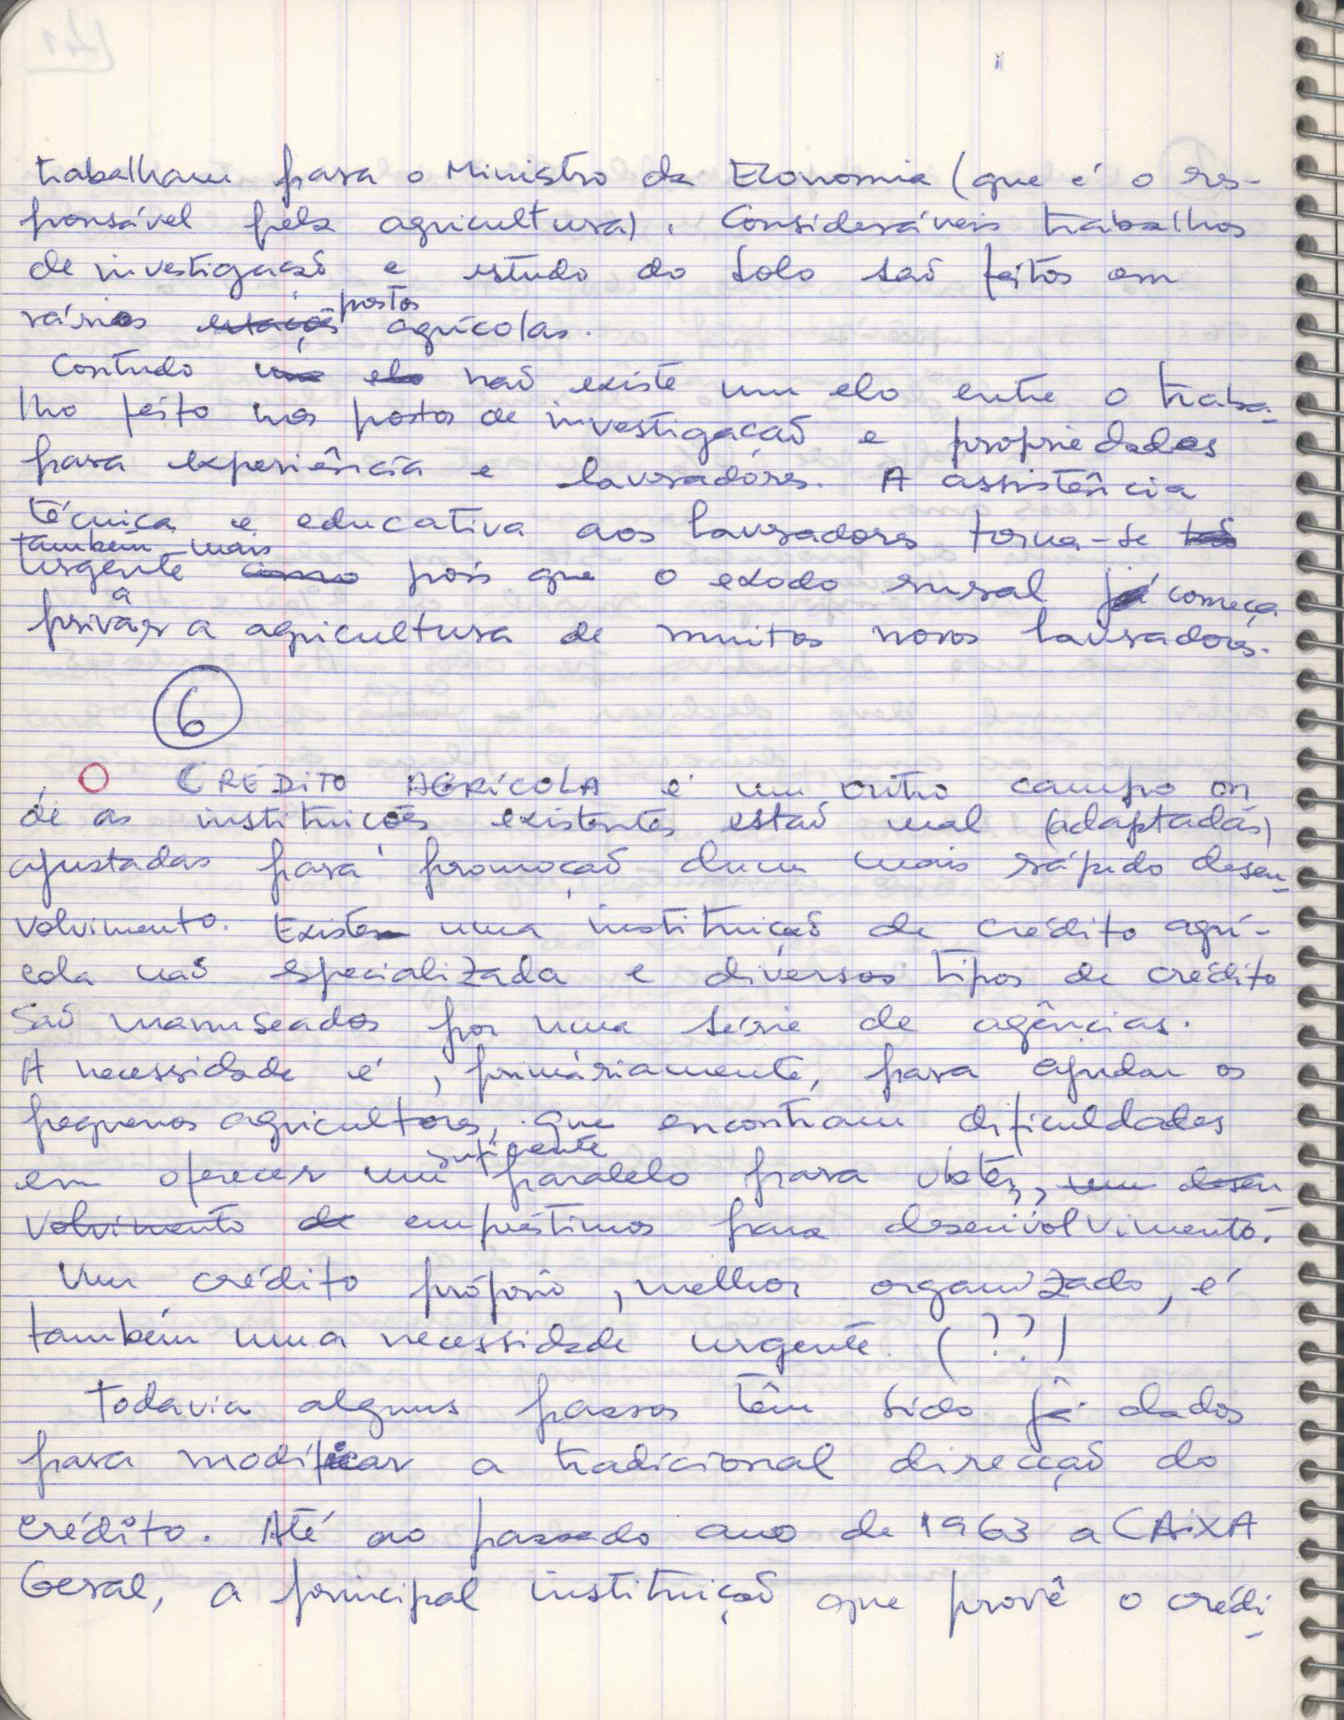 trabalham para o Ministro da Economia (que é o res-
ponsável pela agricultura). Consideráveis trabalhos
de investigação e estudo do solo são feitos em
postos
vários estações agrícolas.
Contudo não existe um elo entre o traba-
lho feito nos postos de investigação e propriedades
para experiência e lavradores. A assistência
técnica e educativa aos lavradores torna-se tão
também mais
urgente como pois que o exodo rural já começa
a
privar a agricultura de muitos novos lavradores.
6
O CRÉDITO AGRÍCOLA é um outro campo on
de as instituições existentes estão mal (adaptadas)
ajustadas para promoção dum mais rápido desen-
volvimento. Existe uma instituição de crédito agrí-
cola não especializada e diversos tipos de crédito
são manuseados por uma série de agências.
A necessidade é, primáriamente, para ajudar os
pequenos agricultores, que encontram dificuldades
suficiente
em oferecer um paralelo para obter, um desen-
volvimento de empréstimos para desenvolvimento.
Um crédito próprio, melhor organizado, é
também uma necessidade urgente. (??)
Todavia alguns passos têm sido já dados
para modificar a tradicional direcção do
crédito. Até ao passado ano de 1963 a CAIXA
Geral, a principal instituição que provê o crédi-